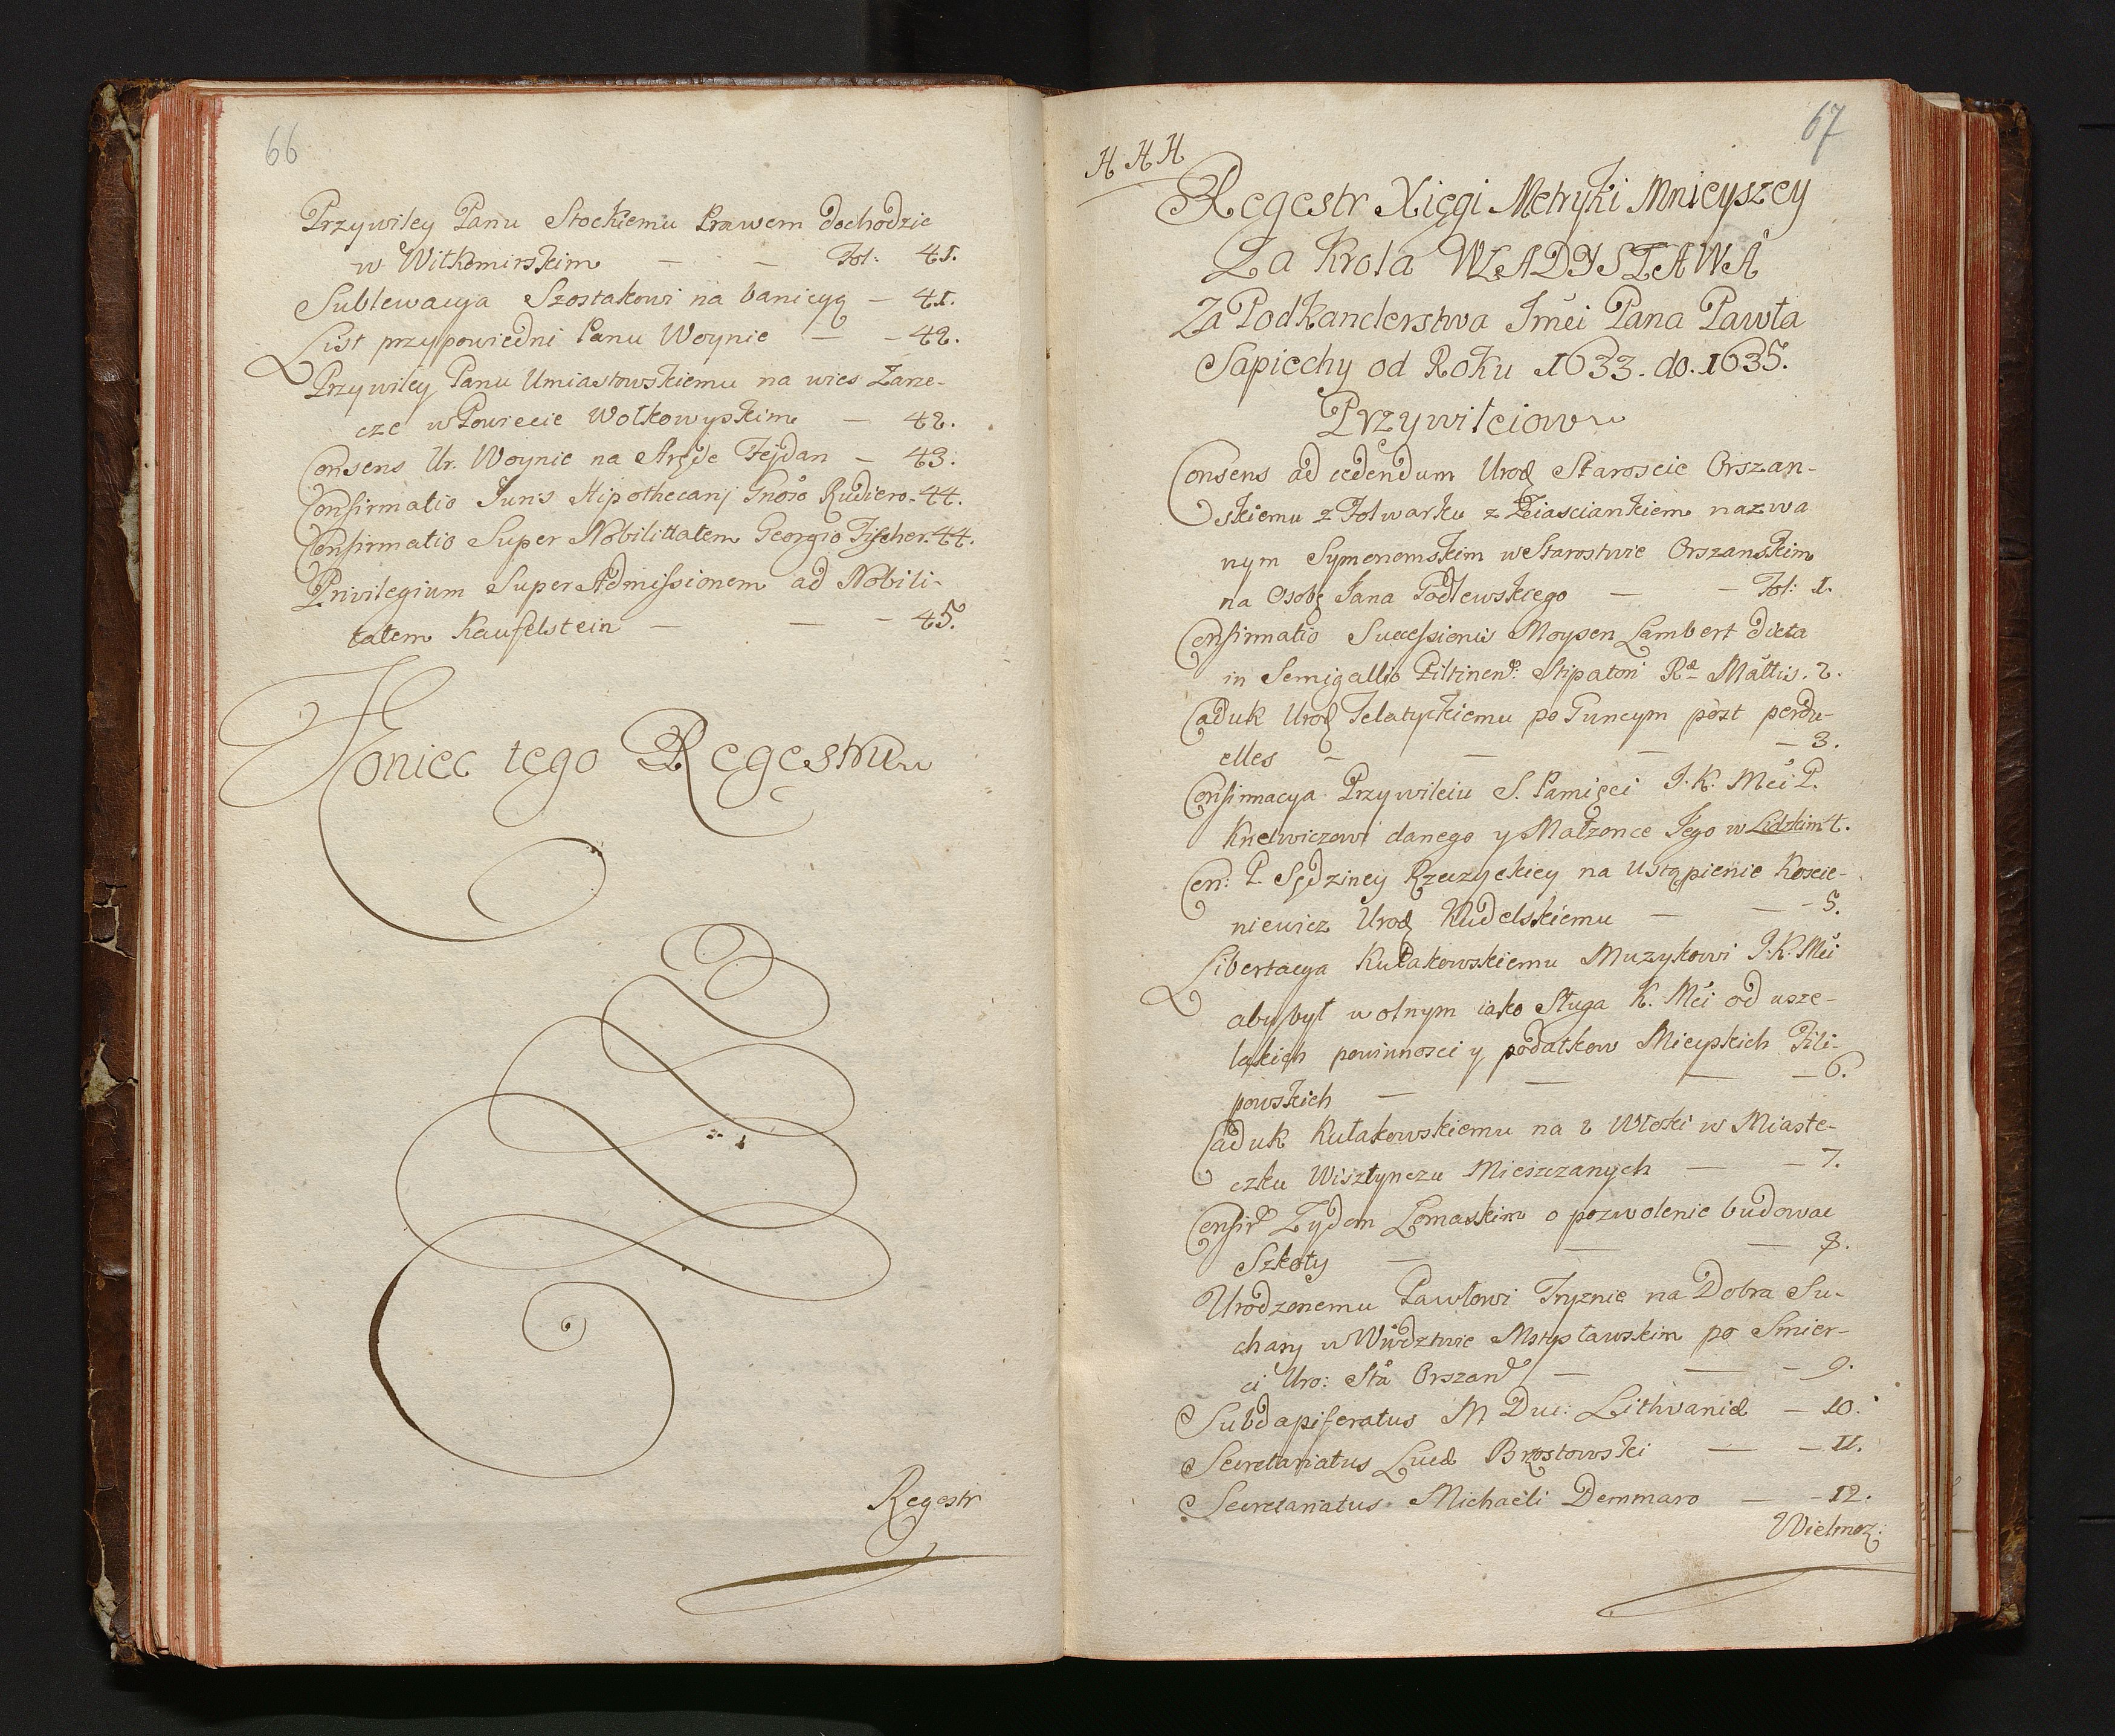 66
Przywiley Panu Stockiemu Prawem dochodzic
w Wilkomirskim — — Fol: 41.
Sublewacya Szostakowi na banicyą — 41.
List przypowiedni Panu Woynie — - 42.
Przywiley Panu Umiastowskiemu na wies Zarze-
cze w Powiecie Wołkowyskim — 42.
Consens Ur. Woynie na Arędę Fejdan — 43.
Confirmatio Juris Hipothecarij Gnoso Rudiero - 44.
Confirmatio Super Nobilittatem Georgio Fischer. 44.
Privilegium Super Admissionem ad Nobili-
tatem Kaufelstein — — - 45.
Koniec tego Regestru
Regestr
67
H H H
Regestr Xięgi Metryki Mnieyszey
Za Krola WŁADYSŁAWA
Za Podkanclerstwa Jmći Pana Pawła
Sapiechy od Roku 1633. do. 1635.
Przywileiow
Consens ad cedendum Urod Staroscie Orszan-
skiemu z Folwarku z Zasciankiem nazwa
nym Symonomskim w Starostwie Orszanskim
na Osobę Jana Podlewskiego — - Fol: 1.
Confirmatio Successionis Moysen Lambert dicta
in Semigallio Piltinen: Stipatori Rᵃ Mattis. 2.
Caduk Urod Jelatyckiemu po Guncym post perdu-
elles - — — - 3.
Confirmacya Przywileiu S. Pamięci J. K. Mći P.
Knelwiczowi danego y Małzonce Jego w Lidzkim 4.
Con: P. Sędziney Rzeczyckiey na ustąpienie Koscie-
niewicz Urod Kludelskiemu — — - 5.
Libertacya Kułakowskiemu Muzykowi J. K. Mći
aby był wolnym iako Sługa K. Mći od wsze-
lakich powinnosci y podatkow Mieyskich Fili-
powskich — — — - 6.
Caduk Kułakowskiemu na 2 Włoki w Miaste-
czku Wisztynczu Mieszczanych — - 7.
Confir Zydom Łomaskim o pozwolenie budowac
Szkoły — — — 8.
Urodzonemu Pawłowi Tryznie na Dobra Su-
chary w Wwdztwie Mstysławskim po Smier-
ci Uro: Sta Orszan — — - 9.
Subdapiferatus M Duc: Lithvaniæ — 10.
Secretariatus Lucæ Brzostowski — - 11.
Secretariatus Michaeli Demmaro — - 12.
Wielmoz: